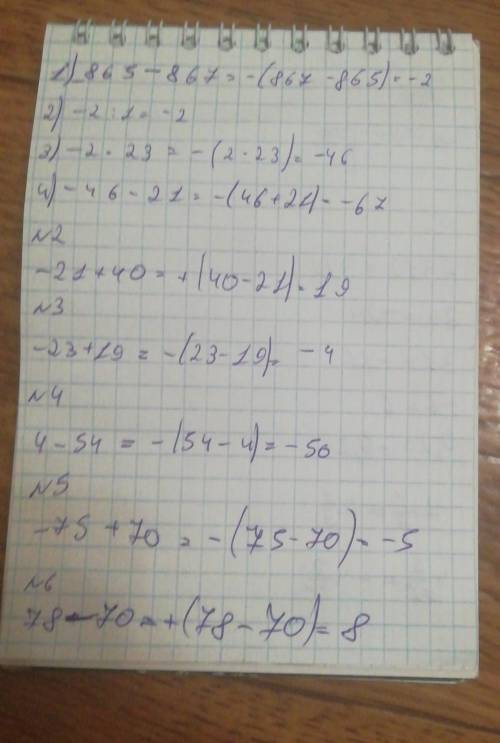 1) 865 - 867 = -(867 - 865) = -2
2) -2 : 1 = -2
3) -2 · 23 = -(2 · 23) = -46
4) -46 - 21 = -(46+21) = -67
№2
-21+40 = +(40-21) = 19
№3
-23+19 = -(23-19) = -4
№4
4 - 54 = -(54-4) = -50
№5
-75 + 70 = -(75-70) = -5
№6
78 - 70 = +(78-70) = 8